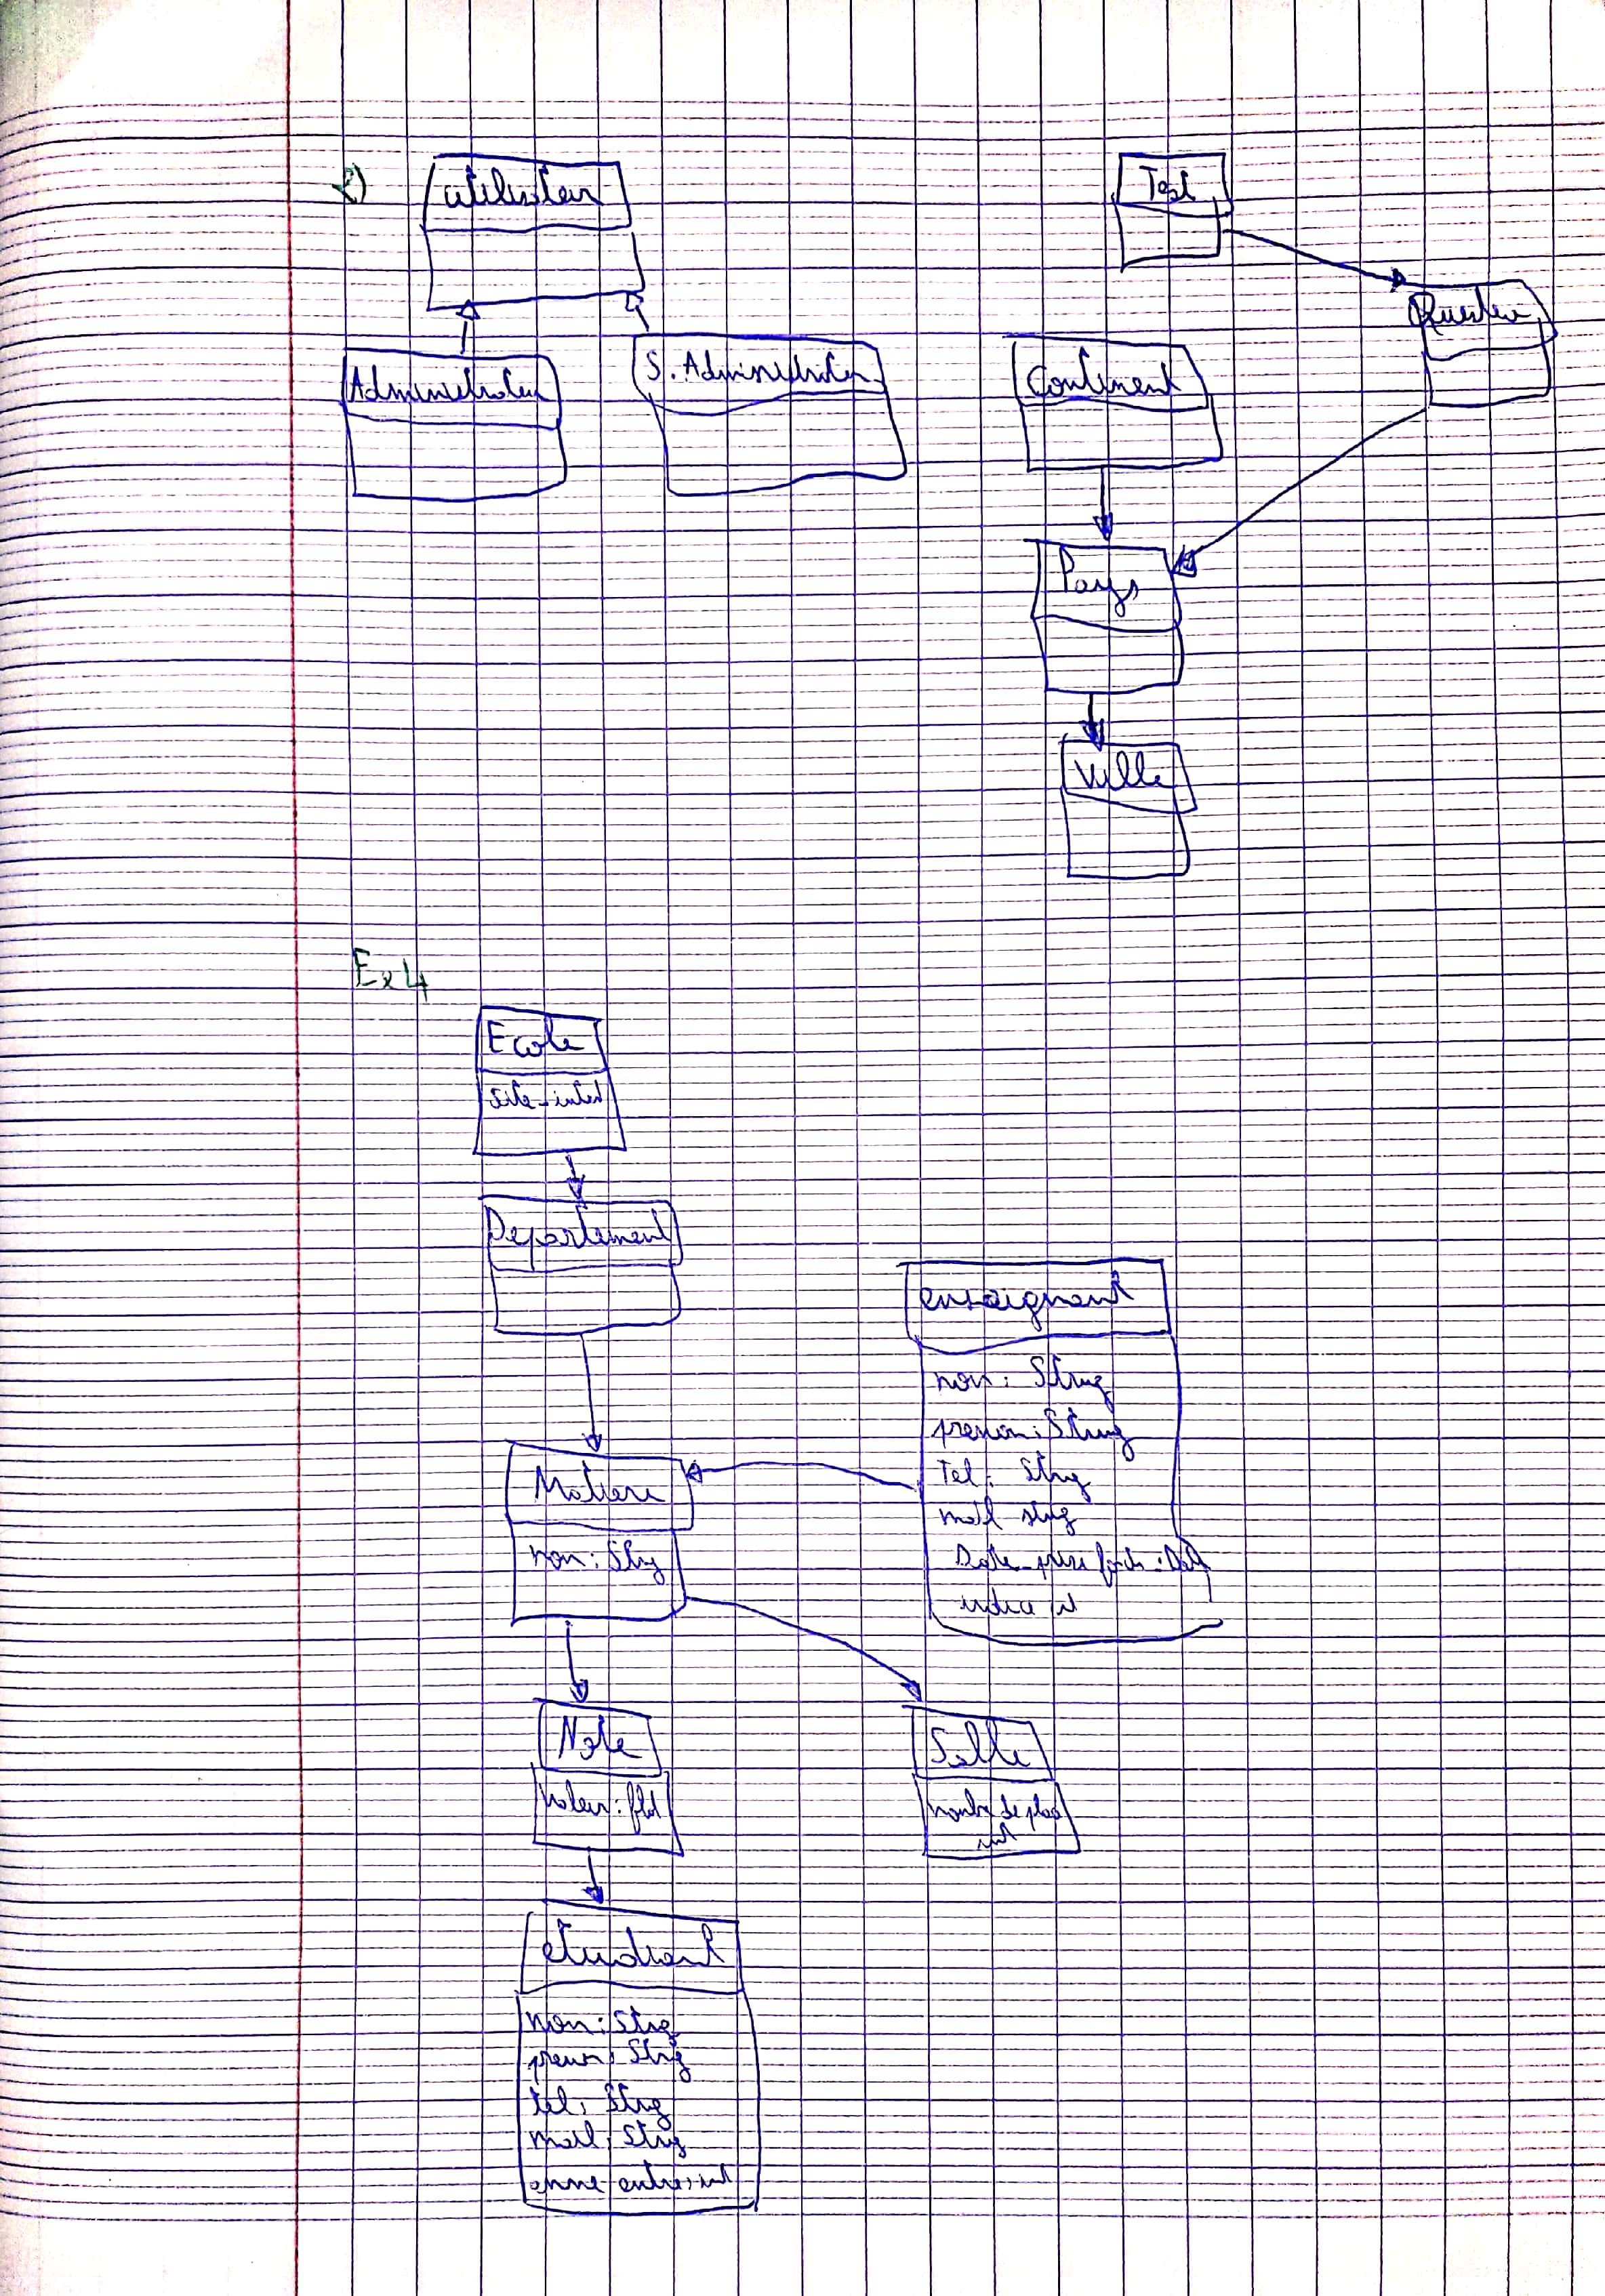 2)
utilisateur
Test
Question
Administrateur
S. Administrateur
Continent
Pays
Ville
Ex 4
Ecole
site-inter
Departement
enseignant
nom: String
prenom: String
Tel: String
mail string
Date-prise : Date
indice int
Matiere
nom: String
Note
valeur: float
Salle
nombre de place
int
étudiant
nom: String
prenom: String
tel: String
mail: String
anne-entre: int